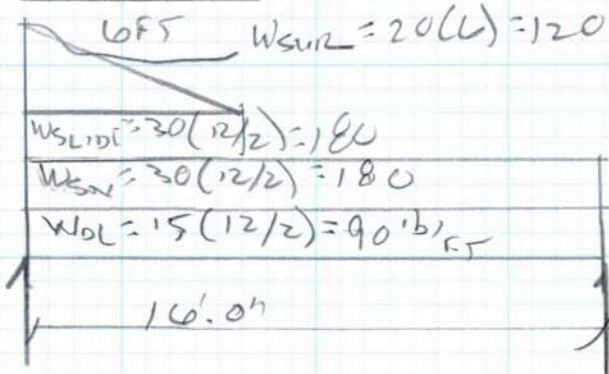 6FT WSUR = 20(6) = 120
WSLIDE = 30(12/2) = 180
WSN = 30(12/2) = 180
WDL = 15(12/2) = 90 lb/FT
16'.0"